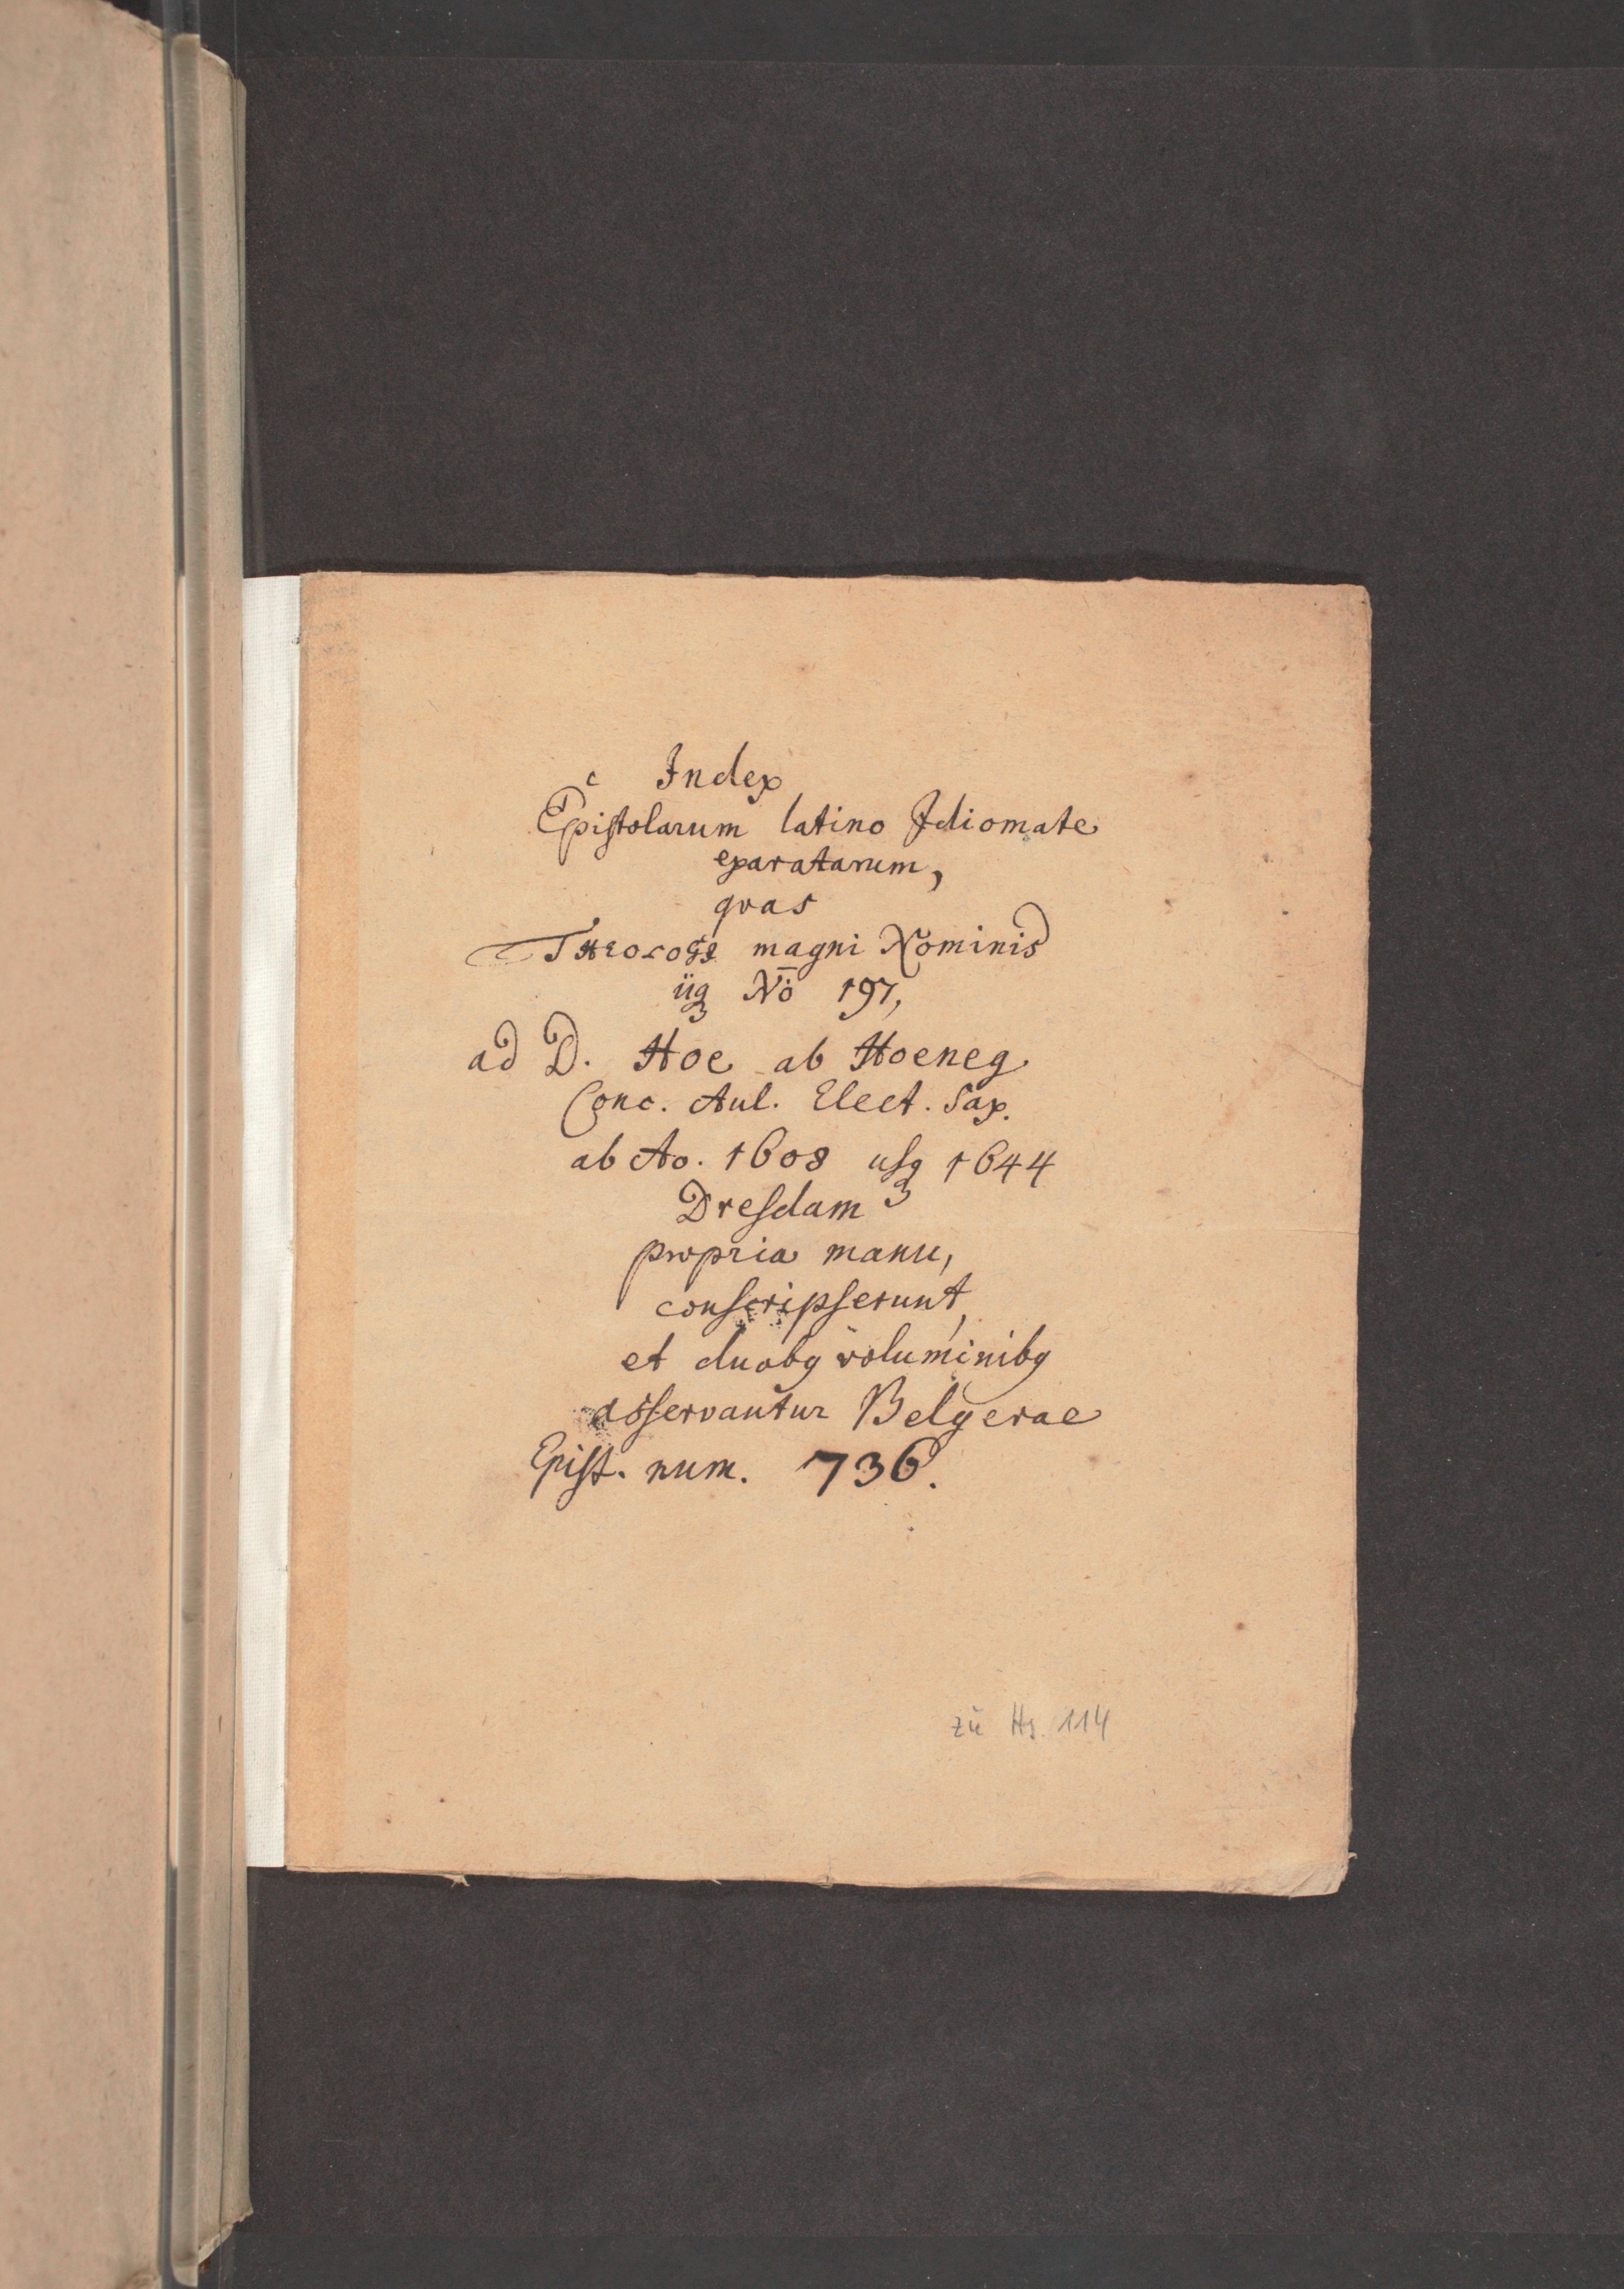 Index
Epistolarum latino Idiomate
exaratarum,
qvas
Theologi magni Nominis
iiq3 No 197,
ad D. Hoe ab Hoeneg
Conc. Aul. Elect. Sax.
ab Ao. 1608 usq3 1644
Dresdam
propria manu,
conscripserunt,
et duobq voluminibq
asservantur Belgerae
Epist. num. 736.
zu Hs. 114